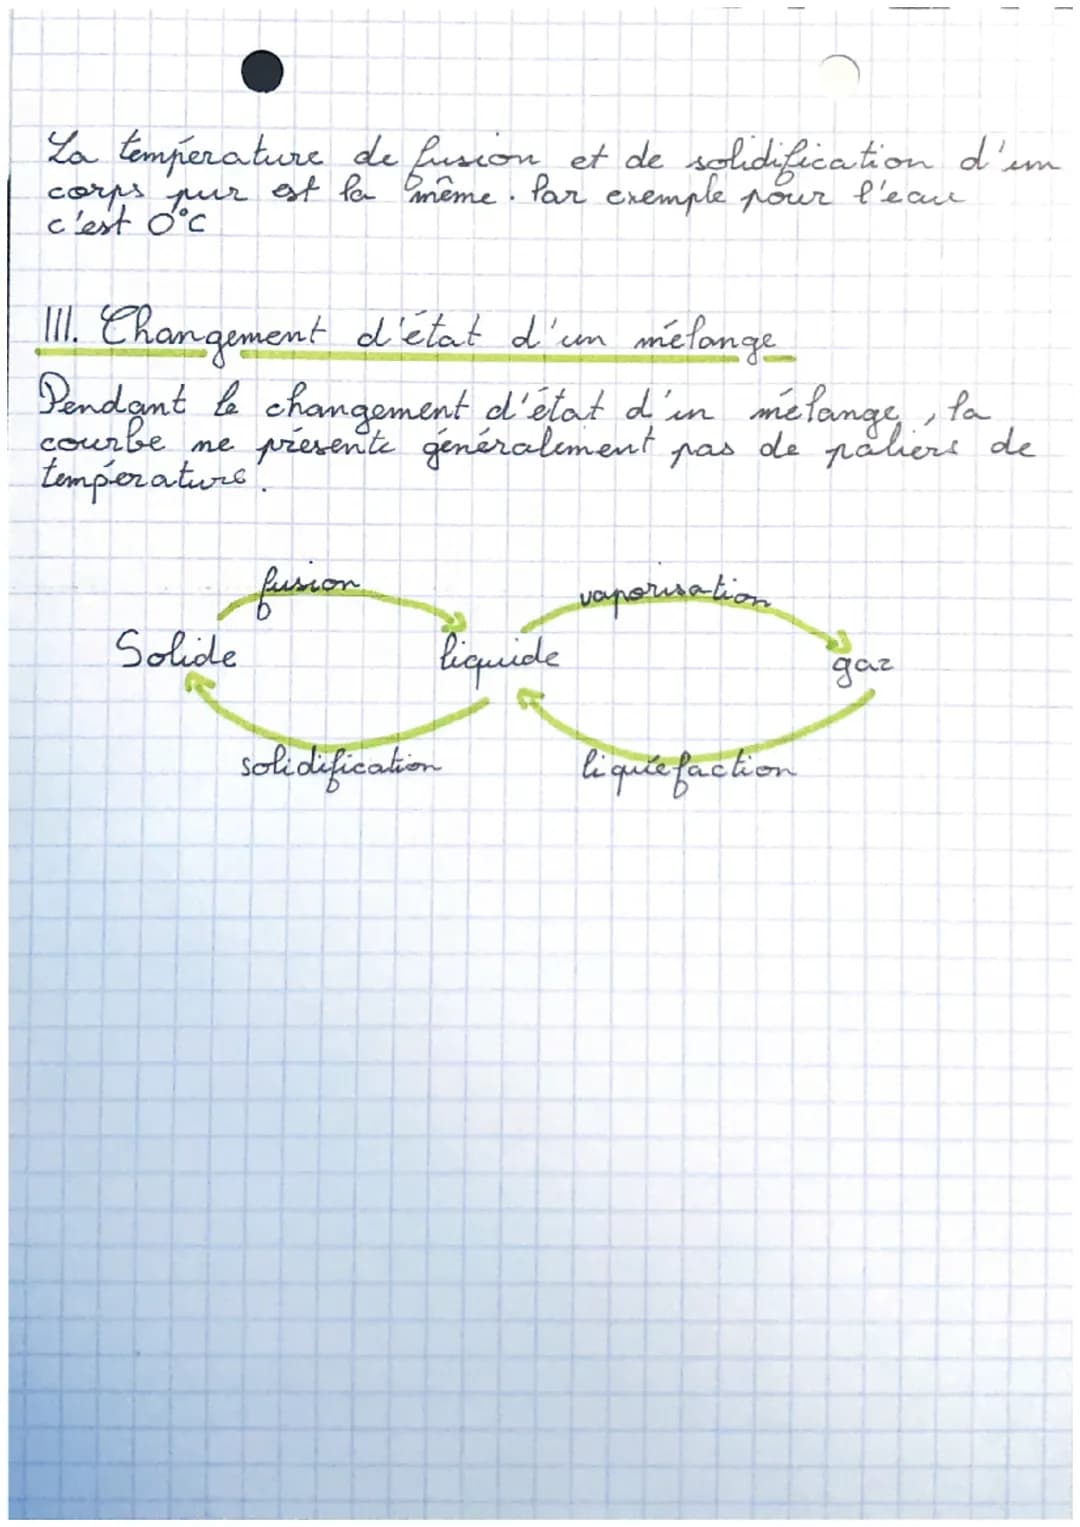 La température de fusion et de solidification d'un
corps pur est la même. Par exemple pour l'eau
c'est 0°C
III. Changement d'état d'un mélange
Pendant le changement d'état d'un mélange, la
courbe ne présente généralement pas de paliers de
température.
fusion
vaporisation
Solide
liquide
gaz
solidification
liquéfaction